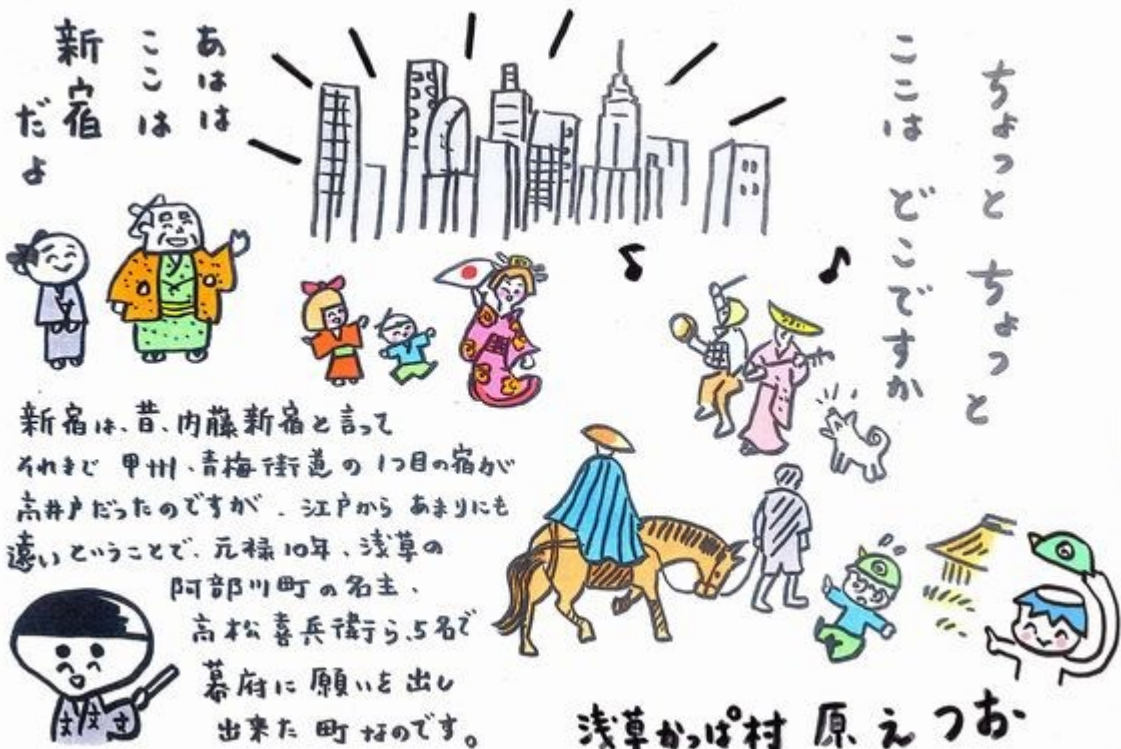 ちょっと ちょっと
ここは どこですか
あはは
ここは
新宿
だよ
新宿は、昔、内藤新宿と言って
それまで 甲州、青梅街道の1つ目の宿が
高井戸だったのですが、江戸から あまりにも
遠いということで、元禄10年、浅草の
阿部川町の名主、
高松喜兵衛ら、5名で
幕府に 願いを出し
出来た 町 なのです。
浅草かっぱ村 原 えつお